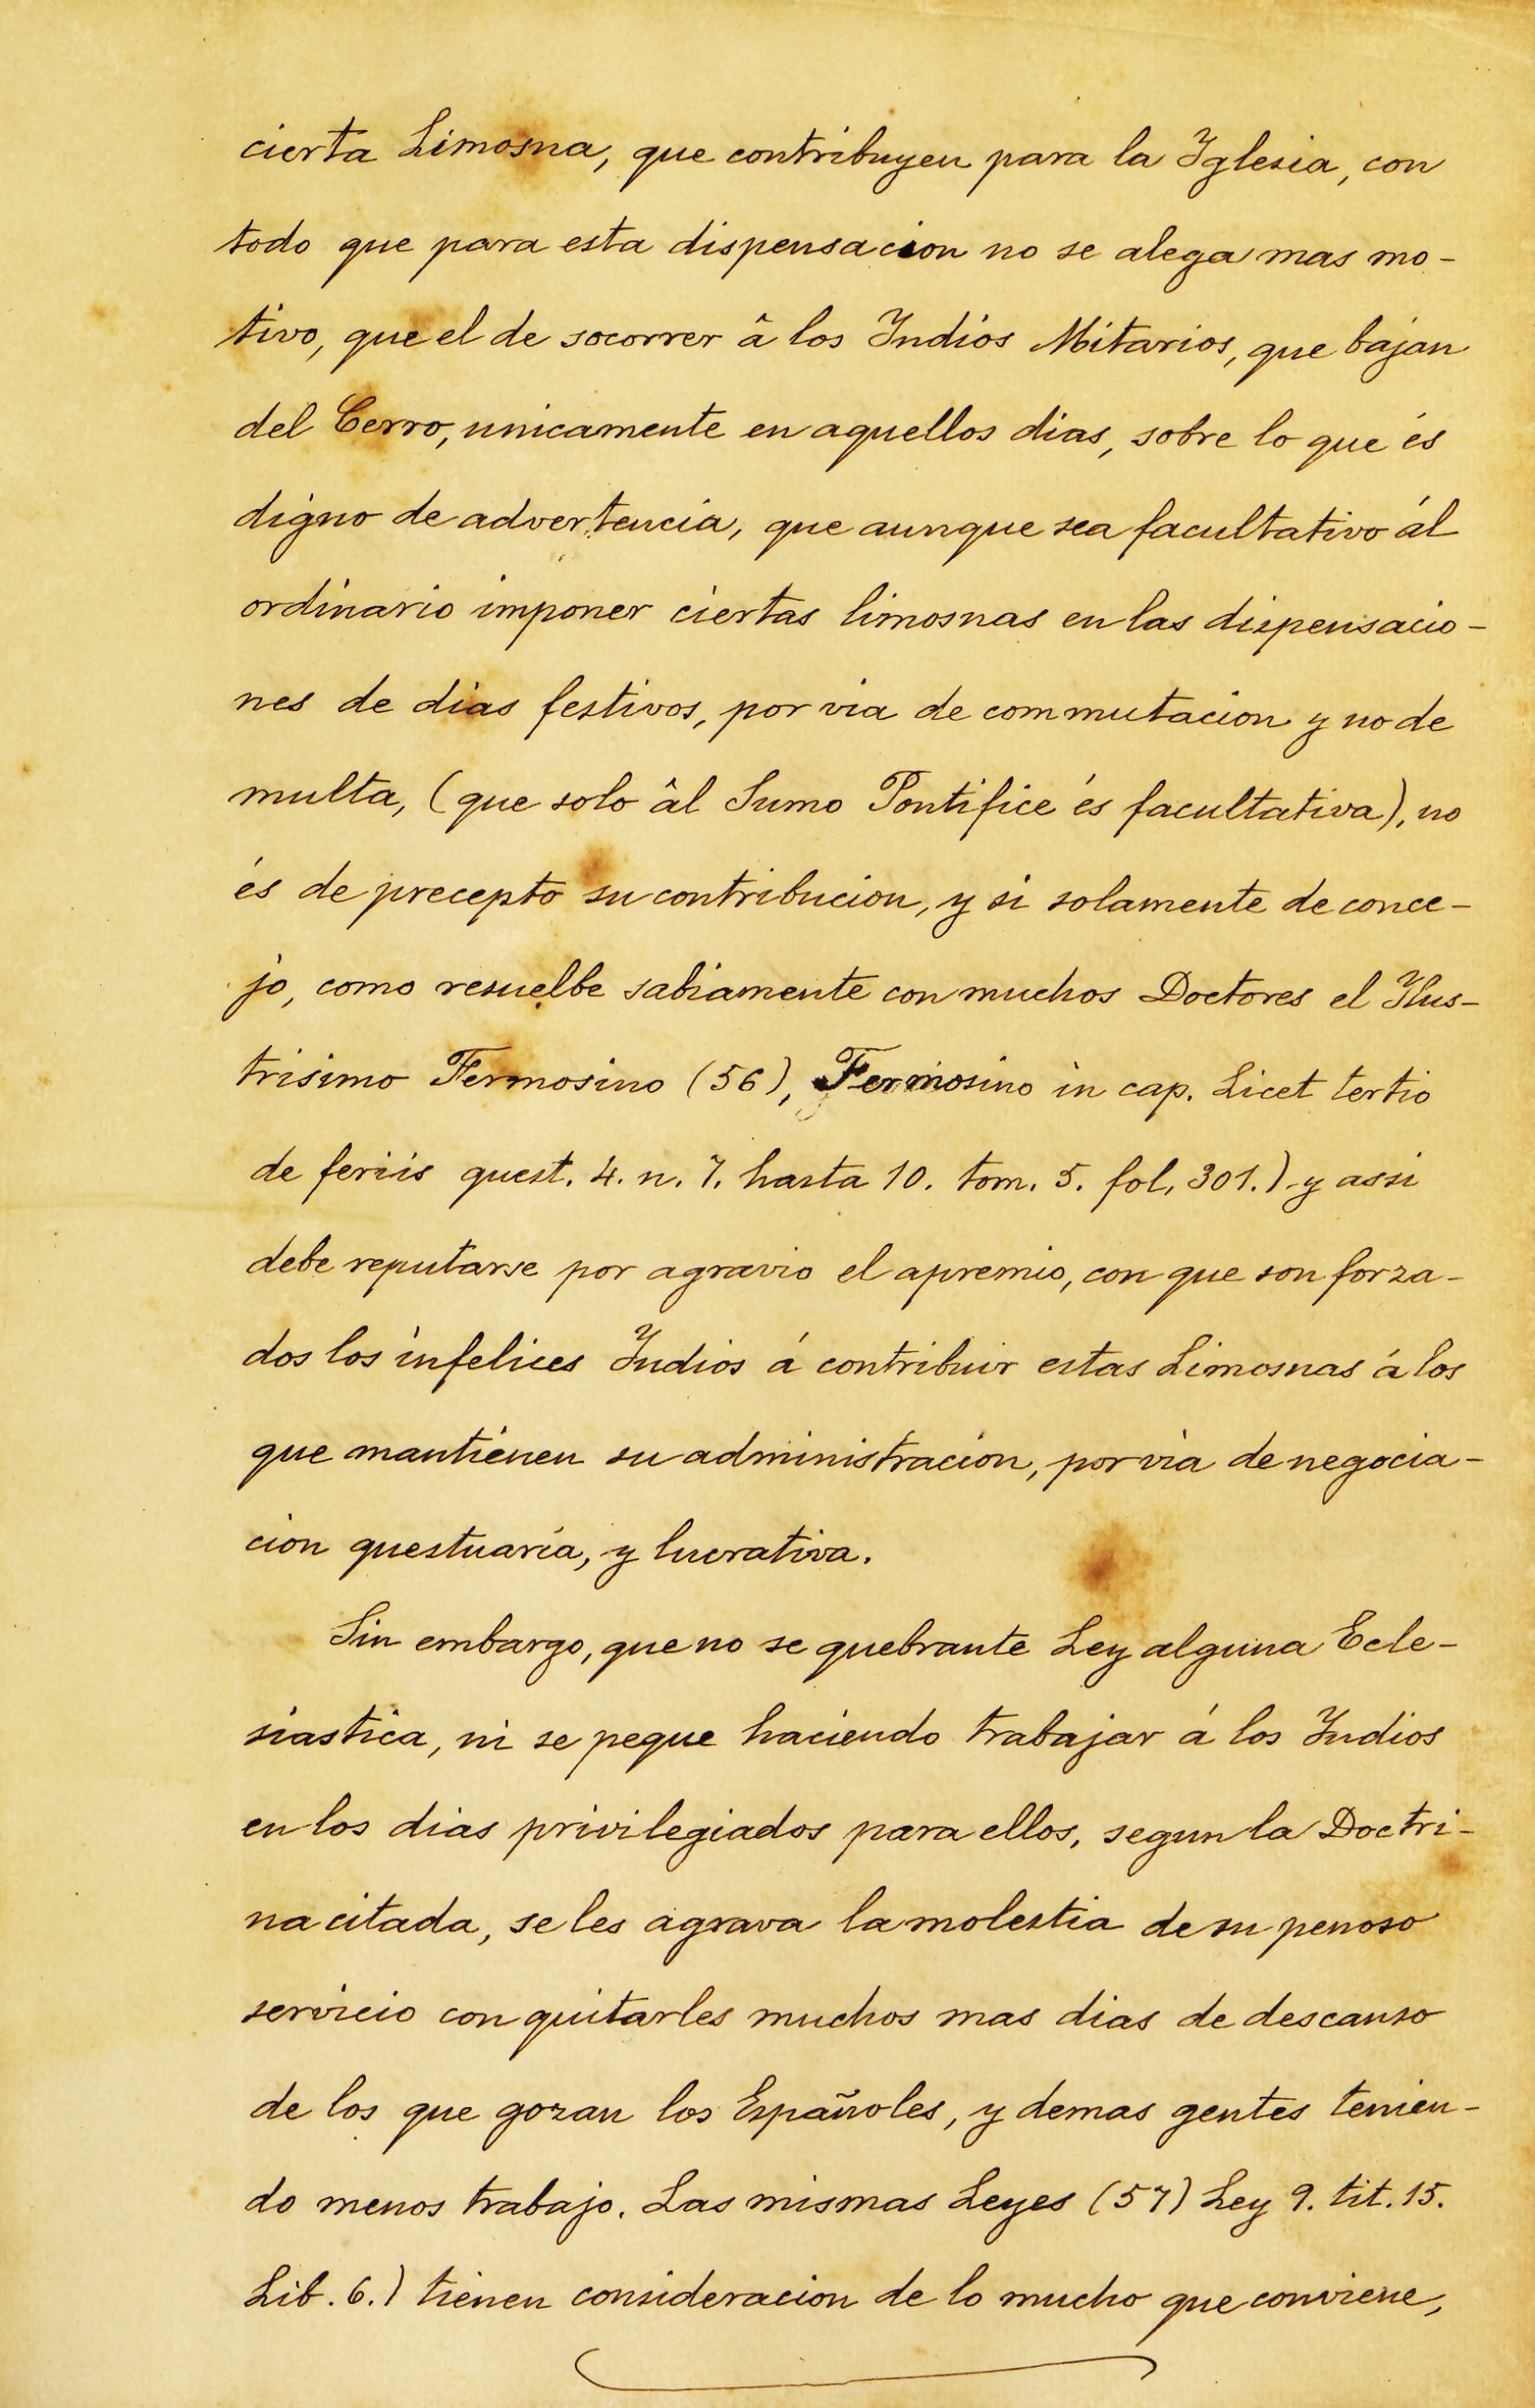 cierta Limosna, que contribuyen para la Iglesia, con
todo que para esta dispensacion no se alega mas mo-
tivo, que el de socorrer â los Indios Mitarios, que bajan
del Cerro, unicamente en aquellos dias, sobre lo que és
digno de advertencia, que aunque sea facultativo ál
ordinario imponer ciertas limosnas en las dispensacio-
nes de dias festivos, por via de commutacion y no de
multa, (que solo âl Sumo Pontifice és facultativa), no
és de precepto su contribucion, y si solamente de conce-
jo, como resuelbe sabiamente con muchos Doctores el Ilus-
trisimo Fermosino (56), Fermosino in cap. Licet tertio
de feriis quest. 4. n. 7. hasta 10. tom. 5. fol. 301.) y assi
debe reputarse por agravio el apremio, con que son forza-
dos los infelices Indios á contribuir estas Limosnas á los
que mantienen su administracion, por via de negocia-
cion questuaria, y lucrativa.
Sin embargo, que no se quebrante Ley alguna Ecle-
siastica, ni se peque haciendo trabajar á los Indios
en los dias privilegiados para ellos, segun la Doctri-
na citada, se les agrava la molestia de su penoso
servicio con quitarles muchos mas dias de descanso
de los que gozan los Españoles, y demas gentes tenien-
do menos trabajo. Las mismas Leyes (57) Ley 9. tit. 15.
Lib. 6.) tienen consideracion de lo mucho que conviene,